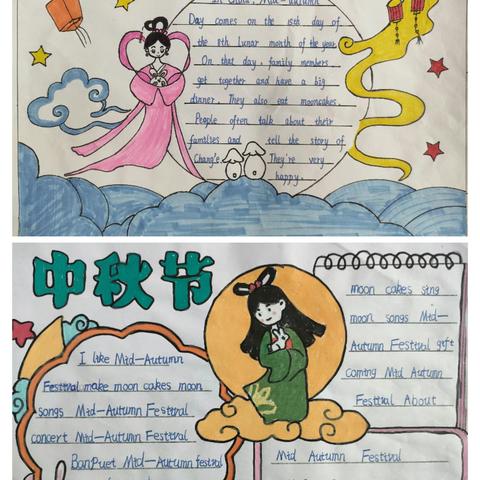 In China, Mid-autumn
Day comes on the 15th day of
the 8th Lunar month of the year.
On that day, family members
get together and have a big
dinner. They also eat mooncakes.
People often talk about their
families and tell the story of
Chang'e. They're very
happy.
中秋节
I like Mid-Autumn
Festival make moon cakes moon
songs Mid-Autumn Festival
concert Mid-Autumn Festival
Banpuet Mid-Autumn festival
moon cakes sing
moon songs Mid-
Autumn Festival gift
coming Mid Autumn
Festtal About
Mid Autumn Festival